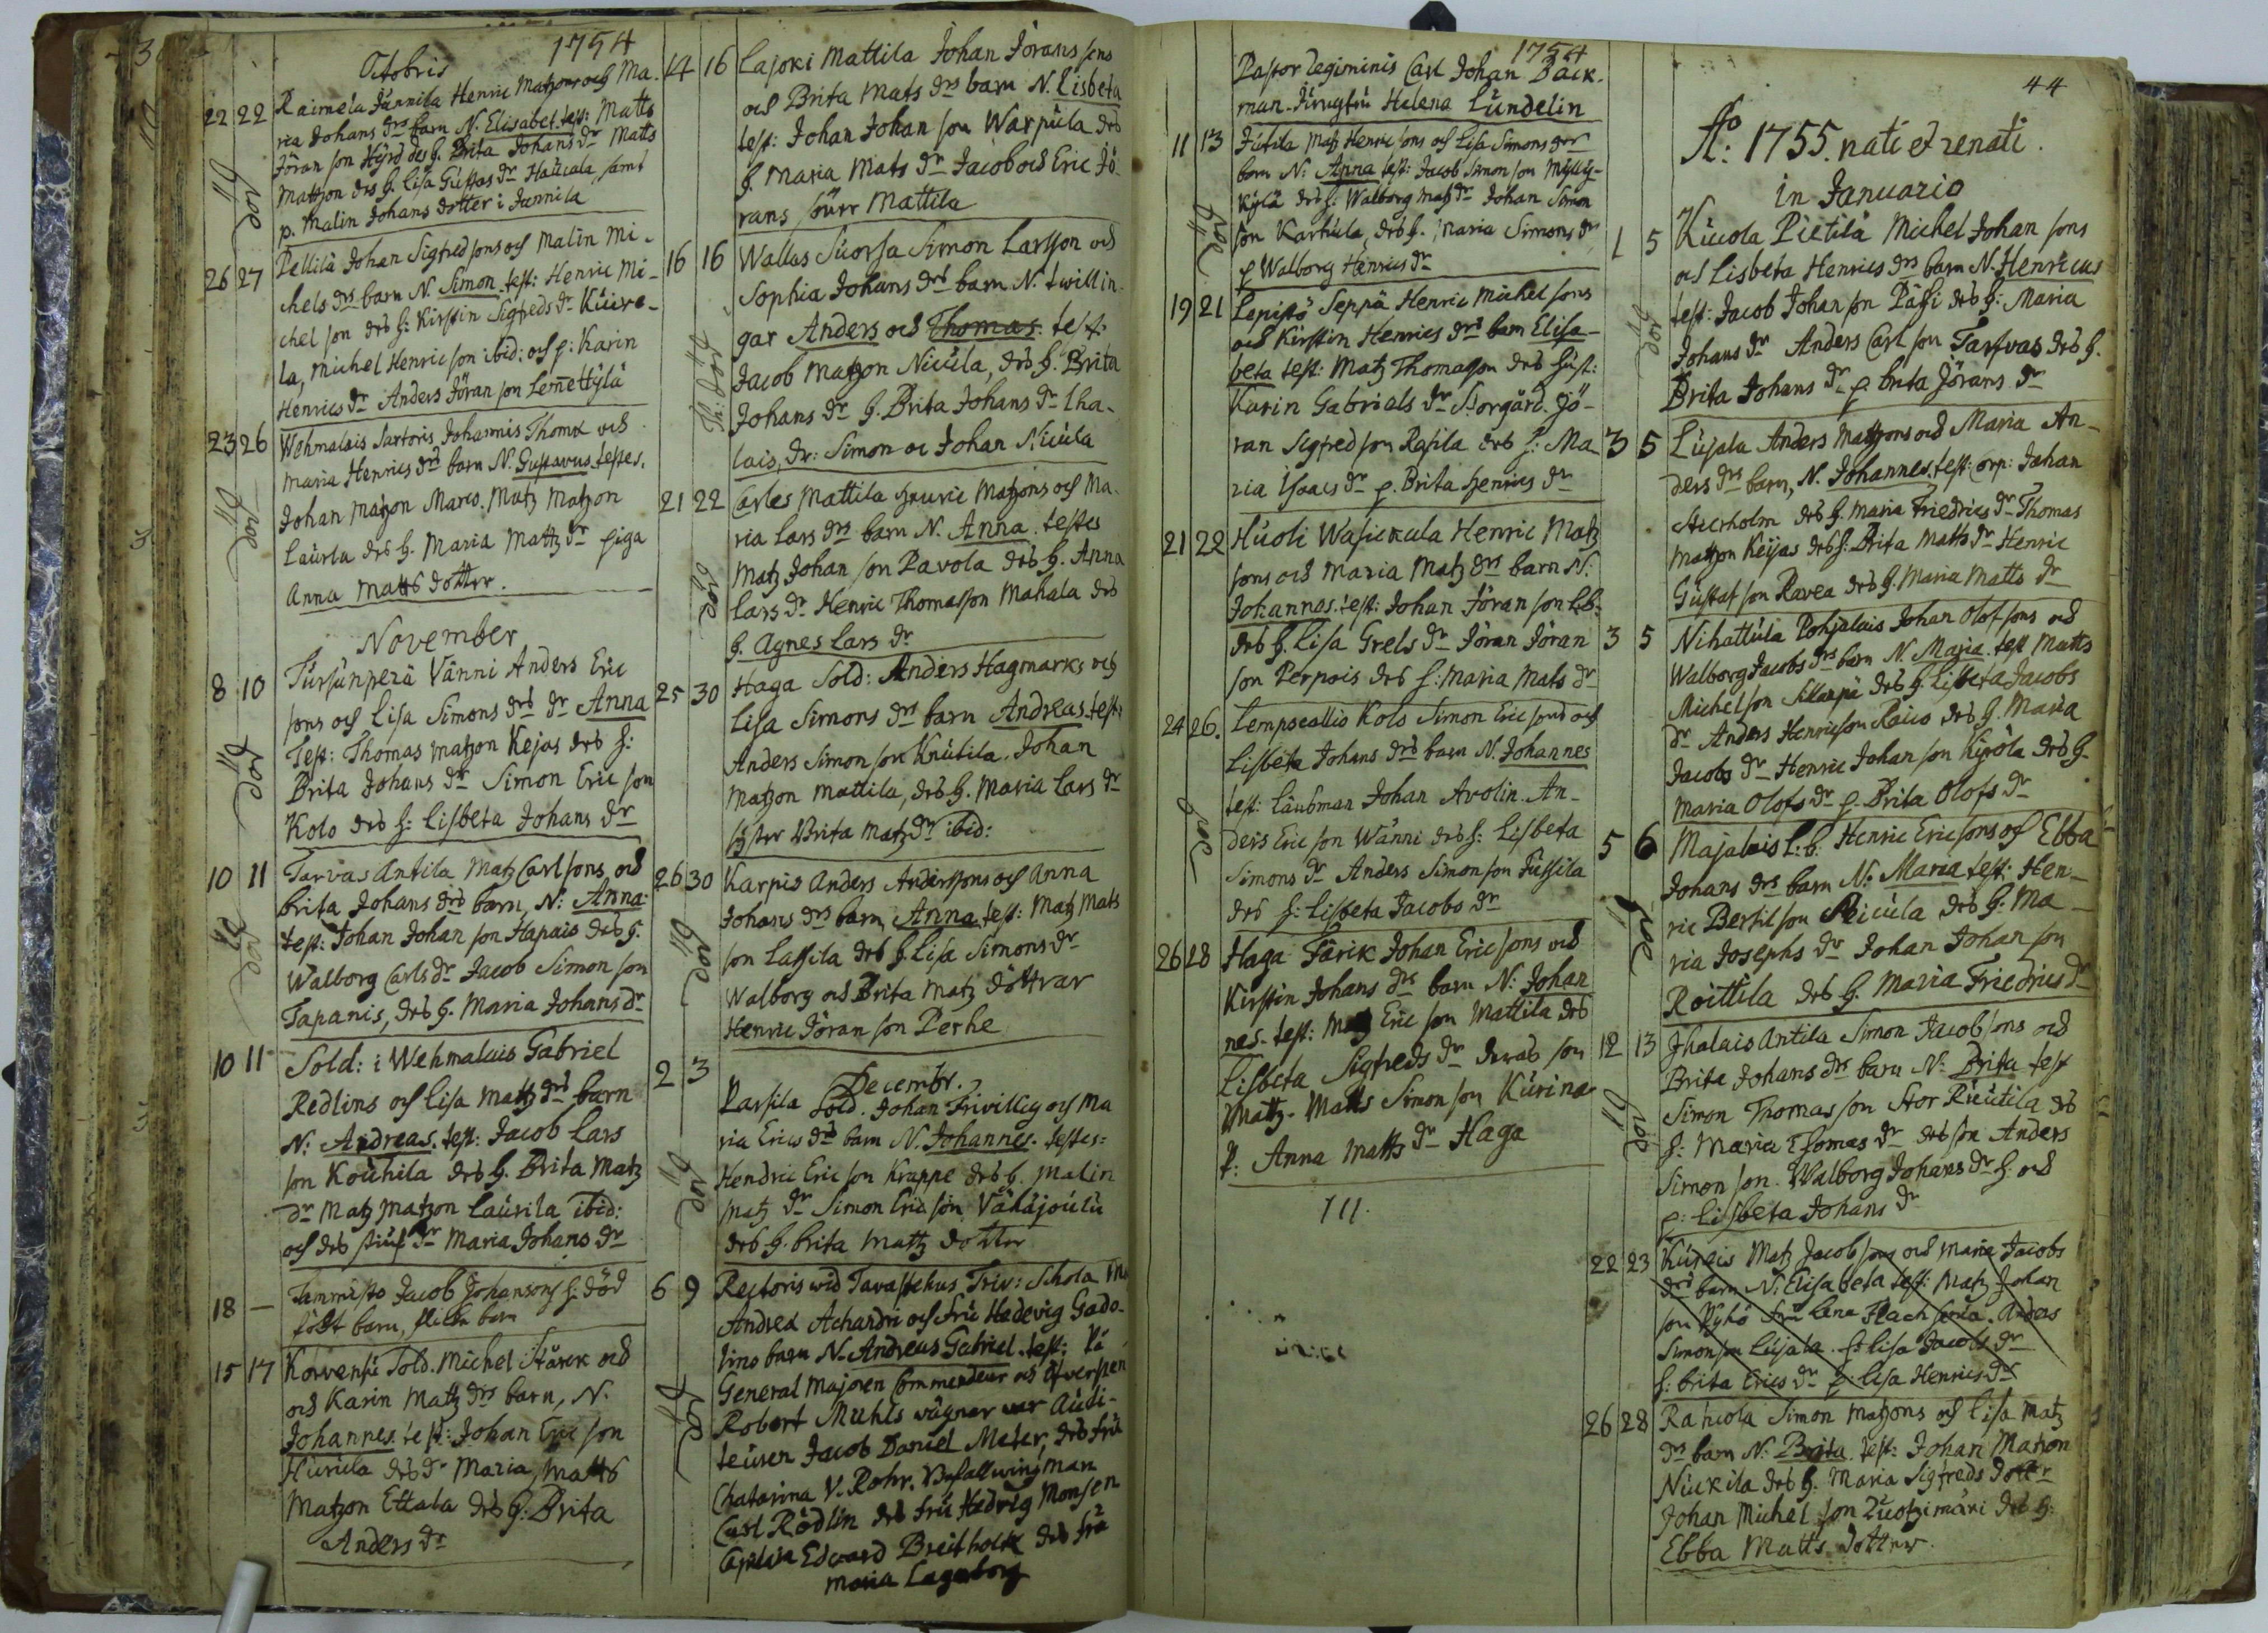 1754
Octobris
22 22 Raimela Jännila Henric Matzons och Ma-
ria Johans drs barn N. Elisabet. test: Matts
Jöran son Hyrd des h. Brita Johans dr Matts
Mattzon des h. Lisa Gustas dr Haucala, samt
p. Malin Johans dotter i Jannila
26 27 Pellilä Johan Sigfred sons och Malin Mi-
chels drs barn N. Simon. test: Henric Mi-
chel son des h: Kirstin Sigfreds dr Kuive-
la, Michel Henric son ibid: och p: Karin
Henrics dr Anders Jöran son Lemettylä
23 26 Wehmalais Sartoris Johannis Thomæ och
Maria Henrics drs barn N. Gustavus. testes.
Johan Matzon Marco. Matz Matzon
Laurla des h. Maria Mattz dr piga
Anna Matts dotter.
November
8 10 Tursunperä Vänni Anders Eric
sons och Lisa Simons drs dr Anna
Test: Thomas Matzon Kejas des h:
Brita Johans dr Simon Eric son
Kolo des h: Lisbeta Johans dr
10 11 Tarvas Antila Matz Carl sons och
Brita Johans drs barn N: Anna.
test: Johan Johan son Hapais des h.
Walborg Carls dr Jacob Simon son
Tapanis, des h. Maria Johans dr
10 11 Sold: i Wehmalais Gabriel
Redlins och Lisa Mattz drs barn
N: Andreas. test: Jacob Lars
son Kouhila des h. Brita Matz
dr Matz Matzon Laurila ibid:
och des stiuf dr Maria Johans dr
18 — Tammisto Jacob Johansons h: död
födt barn, flicke barn
15 17 Korvensu Sold. Michel Starck och
och Karin Matz drs barn, N.
Johannes. test: Johan Eric son
Huvula des dr Maria, Matts
Matzon Ettala des h: Brita
Anders dr
14 16 Lajoki Mattila Johan Jörans sons
och Brita Mats drs barn N. Lisbeta
test: Johan Johan son Warpula des
h. Maria Mats dr Jacob och Eric Jö-
rans söner Mattila
16 16 Wallas Suorsa Simon Larsson och
Sophia Johans drs barn N. twillin-
gar Anders och Thomas. test:
Jacob Matzon Nicula, des h. Brita
Johans dr h. Brita Johans dr Lha-
lais, dr: Simon oc Johan Nicula
21 22 Carles Mattila Henric Matzons och Ma-
ria Lars drs barn N. Anna. testes
Matz Johan son Pavola des h. Anna
Lars dr Henric Thomasson Mahala des
h. Agnes Lars dr
25 30 Haga Sold: Anders Hagmarks och
Lisa Simons drs barn Andreas. test:
Anders Simon son Knutila. Johan
Matzon Mattila, des h. Maria Lars dr
syster Brita Matz dr ibid:
26 30 Karpis Anders Anderssons och Anna
Johans drs barn Anna. test: Matz Mats
son Lassila des h. Lisa Simons dr
Walborg och Brita Matz döttrar
Henric Jöran son Perhe
Decembr.
2 3 Parsila Sold. Johan Frivillig och Ma
ria Erics drs barn N. Johannes. testes:
Hendric Eric son Krappe des h. Malin
Matz dr Simon Eric son Vähäjoulu
des h. Brita Mattz dotter
6 9 Rectoris wid Tavastehus Triv: Schola
Andreæ Achandri och Fru Hedevig Gado-
lins barn N. Andreas Gabriel. test:
General Majoren Commendeur och öfversten
Robert Muhls wägnar war Audi-
teuren Jacob Daniel Meler, des fru
Chatarina V. Rohr. Befallningsman
Carl Rödlin des fru Hedvig Monsen
Capitain Edvard Breitholtz des fru
Maria Lagerborg
1754
Pastor Legiminis Carl Johan Bäck-
man. Jungfru Helena Lundelin
11 13 Jutila Matz Henric sons och Lisa Simons drs
barn N: Anna test: Jacob Simon son Mylly-
kylä des h: Walborg Matz dr Johan Simon
son Karhula, des h. Maria Simons dr
p Walborg Henrics dr
19 21 Lepistö Seppä Henric Michel sons
och Kirstin Henrics drs barn Elisa-
beta test: Matz Thomasson des hust:
Karin Gabriels dr Storgård. Jö-
ran Sigfred son Rasila des h: Ma-
ria Isaacs dr p. Brita Henrics dr
21 22 Huoli Wasickala Henric Matz
sons och Maria Matz drs barn N:
Johannes. test: Johan Jöran son Lb:
des h. Lisa Grels dr Jöran Jöran
son Perpois des h: Maria Mats dr
24 26. Lempocallio Kolo Simon Eric sons och
Lisbeta Johans drs barn N. Johannes
test: Laubman Johan Avolin. An-
ders Eric son Wänni des h: Lisbeta
Simons dr Anders Simon son Jussila
des h: Lisbeta Jacobs dr
26 28 Haga Färik Johan Eric sons och
Kirstin Johans drs barn N: Johan
nes. test: Matz Eric son Mattila des
Lisbeta Sigfreds dr deras son
Mattz. Matts Simon son Kurina
P: Anna Matts dr Haga
111.
44
Ao: 1755. nati et renati.
in Januario
1 5 Kucola Pietilä Michel Johan sons
och Lisbeta Henrics drs barn N. Henricus
test: Jacob Johan son Pässi des h: Maria
Johans dr Anders Carl son Tarfvas des h.
Brita Johans dr p. Brita Jörans dr
3 5 Lusala Anders Matzons och Maria An-
ders drs barn, N. Johannes. test: Crp: Johan
Åkerholm des h. Maria Friedrics dr Thomas
Matzon Keijas des h: Brita Matts dr Henric
Gustaf son Ravea des h. Maria Matts dr
3 5 Nihattula Pohjalais Johan Olof sons och
Walborg Jacobs drs barn N. Maria. test Matts
Michel son Sillanpä des h. Lisbeta Jacobs
dr Anders Henricson Raico des h. Maria
Jacobs dr Henric Johan son Kyrölä des h.
Maria Olofs dr p. Brita Olofs dr
5 6 Majalais L:b: Henric Eric sons och Ebba
Johans drs barn N: Maria test: Hen-
ric Bertil son Reicula des h: Ma-
ria Josephs dr Johan Johan son
Roittila des h. Maria Friedrics dr
12 13 Jhalais Antila Simon Jacob sons och
Brita Johans drs barn N: Brita test
Simon Thomas son Stor Rieutila des
h: Maria Thomas dr des son Anders
Simon son. Walborg Johans dr h: och
p: Lisbeta Johans dr
22 23 Kurais Matz Jacob sons och Maria Jacobs
drs barn N: Elisabeta test: Matz Johan
son Ryhö Fru Lena Flachsenia. Anders
Simon son Lusala. h: Lisa Jacobs dr
h: Brita Erics dr p. Lisa Henrics dr
26 28 Rahcola Simon Matzons och Lisa Matz
drs barn N: Brita. test: Johan Matzon
Niuckila des h. Maria Sigfreds dotter
Johan Michel son Luotzimäki des h:
Ebba Matts dotter.